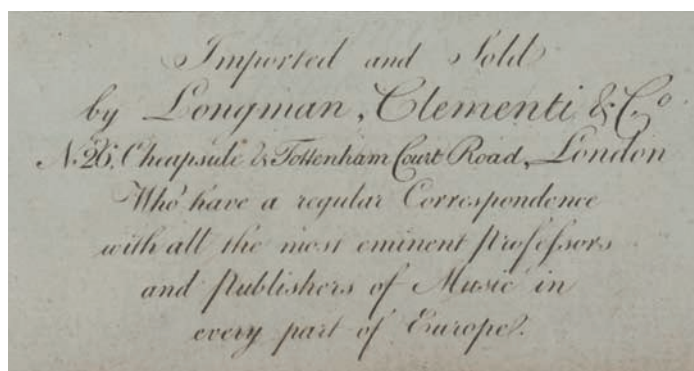 Imported and Sold
by Longman, Clementi & Co.
No. 26, Cheapside & Tottenham Court Road, London
Who have a regular Correspondence
with all the most eminent Professors
and Publishers of Music in
every part of Europe.